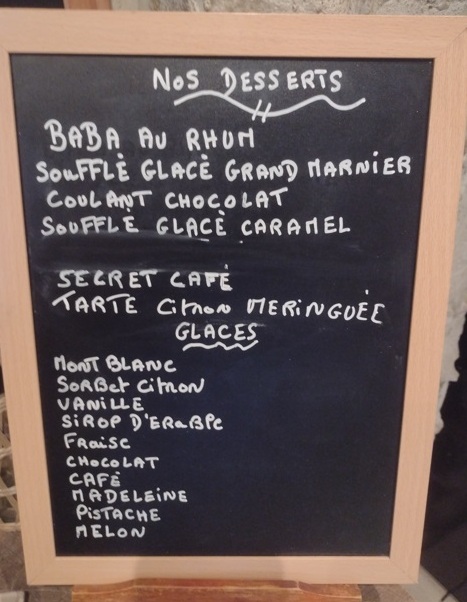 NOS DESSERTS
BABA AU RHUM
SOUFFLÈ GLACÈ GRAND MARNIER
COULANT CHOCOLAT
SOUFFLÈ GLACÈ CARAMEL
SECRET CAFÈ
TARTE CitRON MERiNGUÈE
GLACES
MONT BLANC
SORBEt CitRON
VANiLLE
SiROP D'ERaBPe
FRaiSe
CHOCOLAT
CAFÈ
MADELEINE
PiSTACHE
MELON